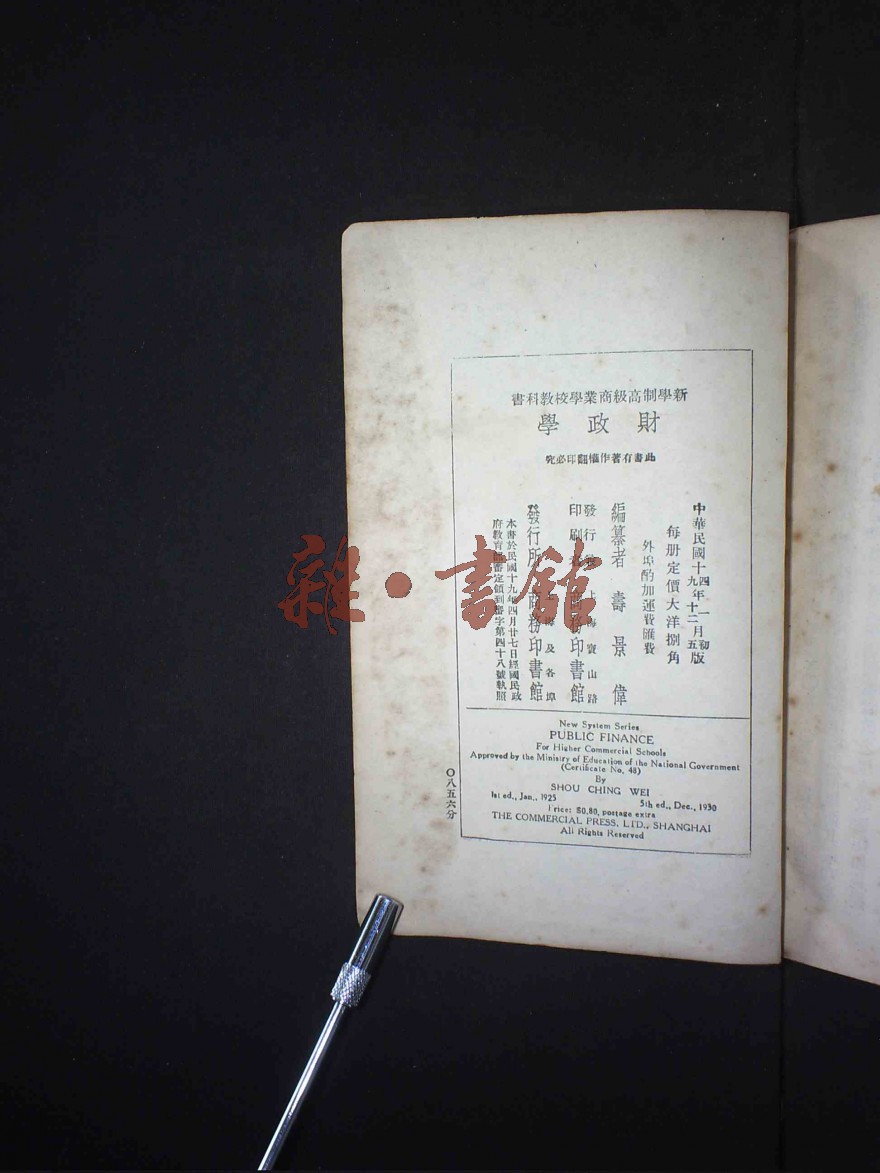 新學制高級商業學校教科書
財政學
此書有著作權翻印必究
中華民國十四年一月初版
九年十二月五版
每册定價大洋捌角
外埠酌加運費匯費
編纂者 壽景偉
發行 上海寶山路
印刷 商務印書館
發行所 商務印書館
及各埠
本書於民國十九年四月廿七日經國民政
府教育部審定領到審字第四十八號執照
New System Series
PUBLIC FINANCE
For Higher Commercial Schools
Approved by the Ministry of Education of the National Government
(Certificate No. 48)
By
SHOU CHING WEI
1st ed., Jan., 1925 5th ed., Dec., 1930
Price: $0.80, postage extra
THE COMMERCIAL PRESS, LTD., SHANGHAI
All Rights Reserved
〇八五六分
雜·書館